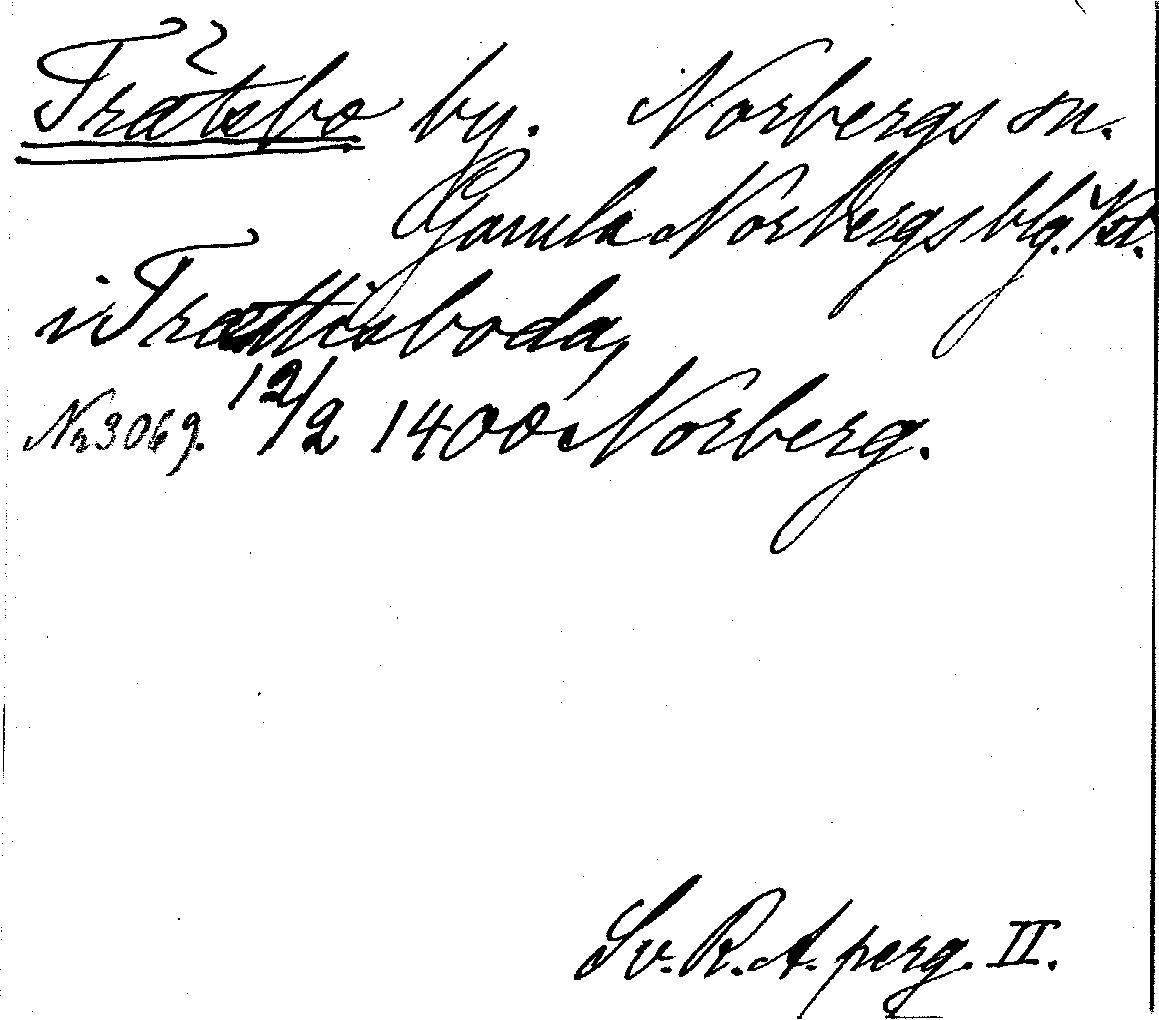 Trätsbo by. Norbergs sn.
Gamla Norbergs blg. Vstm.
i Trættisboda,
Nr 3069. 12/2 1400 Norberg.
Sv. R. A. perg. II.